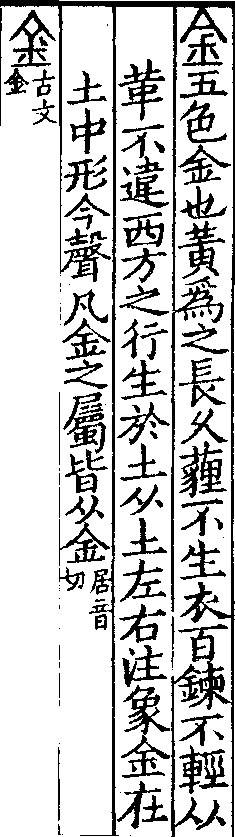 金五色金也黃爲之長久薶不生衣百鍊不輕从
革不違西方之行生於土从土左右注象金在
土中形今聲凡金之屬皆从金居音切
金古文金